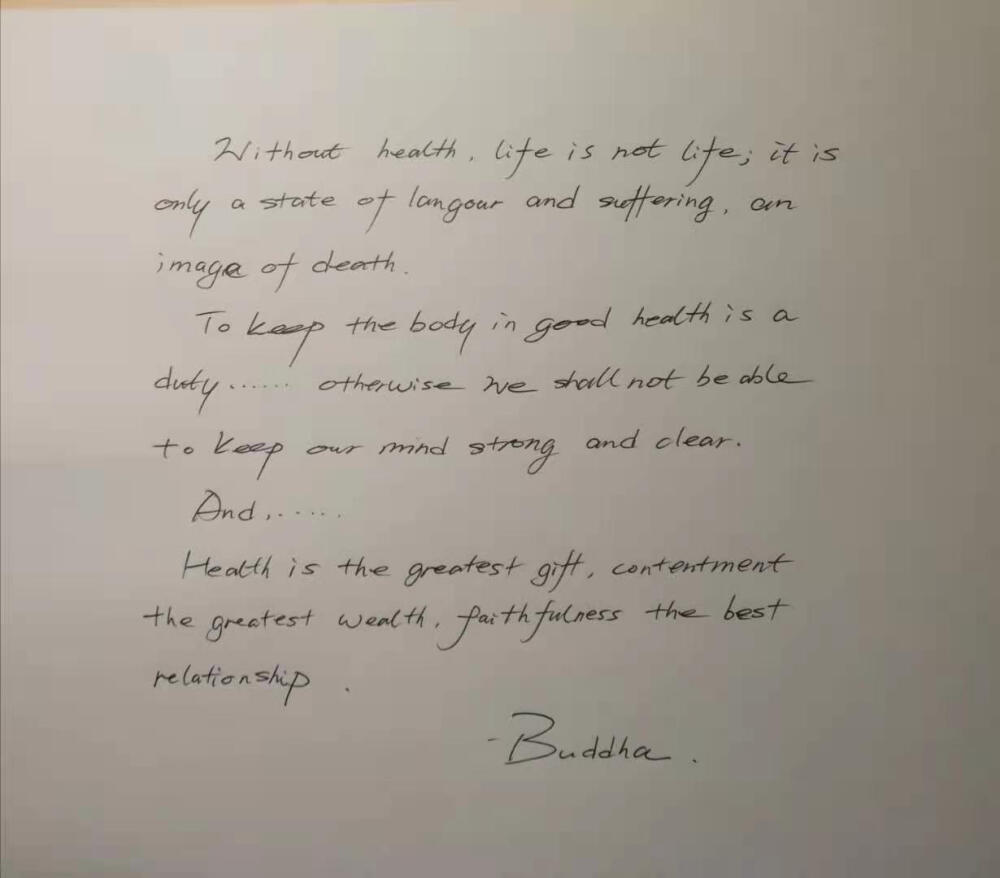 Without health, life is not life; it is
only a state of langour and suffering, an
image of death.
To keep the body in good health is a
duty...... otherwise we shall not be able
to keep our mind strong and clear.
And,.....
Health is the greatest gift, contentment
the greatest wealth, faithfulness the best
relationship.
-Buddha.